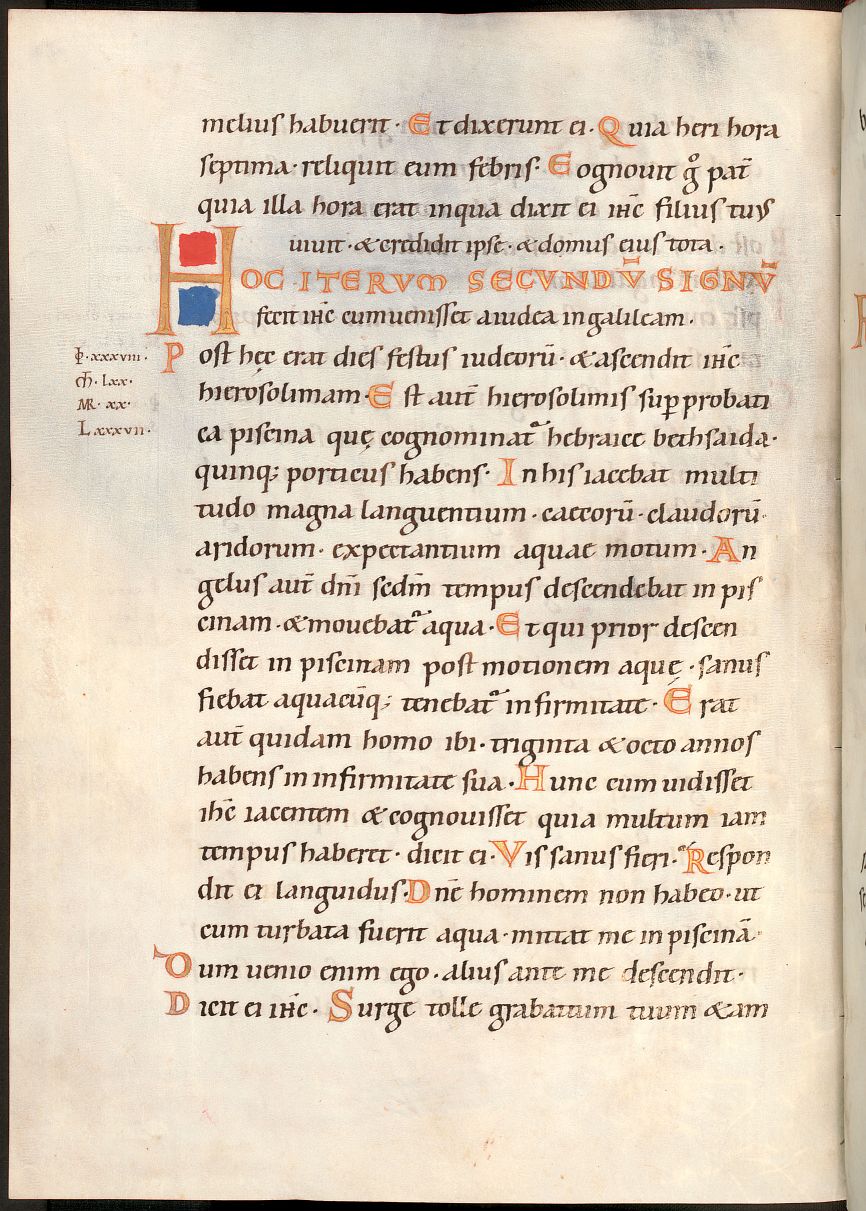 melius habuerit · Et dixerunt ei · Quia heri hora
septima · reliquit eum febris · Cognouit g̊ pat̄
quia illa hora erat inqua dixit ei ihc̄ filius tuus
uiuit · & credidit ipse · & domus eius tota ·
HOC ITERVM SECVNDV̄ SIGNV̄
fecit ihc̄ cum uenisset aiudea in galileam ·
Post hęc erat dies festus iudeorū · & ascendit ihc̄
hierosolimam · Est aut̄ hierosolimis sup̄ probati
ca piscina quę cognominat᷑ hebraice bethsaida ·
quinq; porticus habens · In his iacebat multi
tudo magna languentium · caecorū · claudorū
aridorum · expectantium aquae motum · An
gelus aut̄ dn̄i sedm̄ tempus descendebat in pis
cinam · & mouebat᷑ aqua · Et qui prior descen
disset in piscinam post motionem aquę · sanus
fiebat aquacūq; tenebat᷑ infirmitate · Erat
aut̄ quidam homo ibi · triginta & octo annos
habens in infirmitate sua · Hunc cum uidisset
ihc̄ iacentem & cognouisset quia multum iam
tempus haberet · dicit ei · Vis sanus fieri · Respon
dit ei languidus · Dn̄e hominem non habeo · ut
cum turbata fuerit aqua · mittat me in piscinā ·
Dum uenio enim ego · alius ante me descendit ·
Dicit ei ihc̄ · Surge tolle grabattum tuum & am
· xxxviii ·
· lxx ·
MR · xx ·
L xxxvii ·